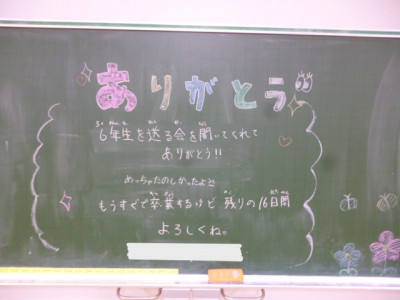 ありがとう
6年生を送る会を開いてくれて
ありがとう!!
めっちゃたのしかったよ
もうすぐで卒業するけど 残りの16日間
よろしくね。